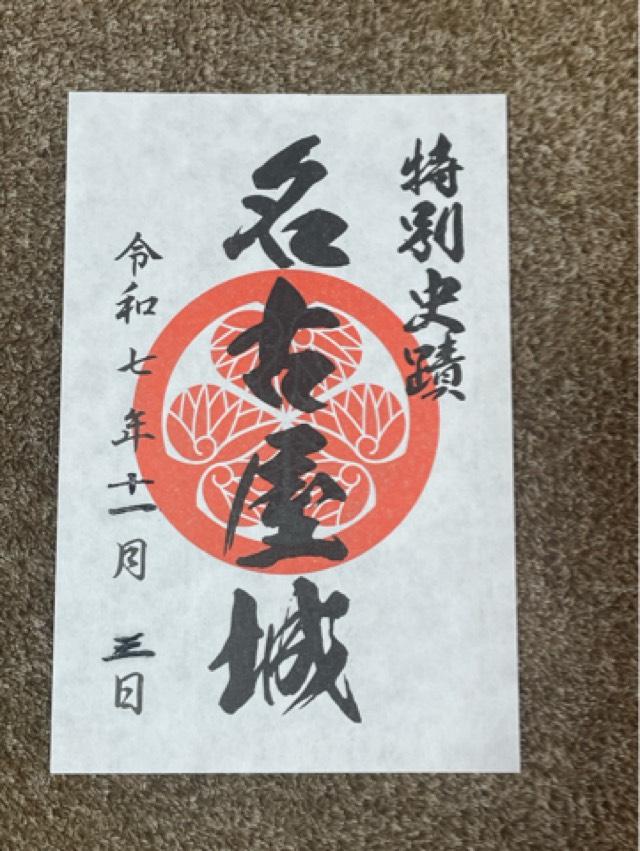 特別史蹟
名古屋城
令和七年十一月三日